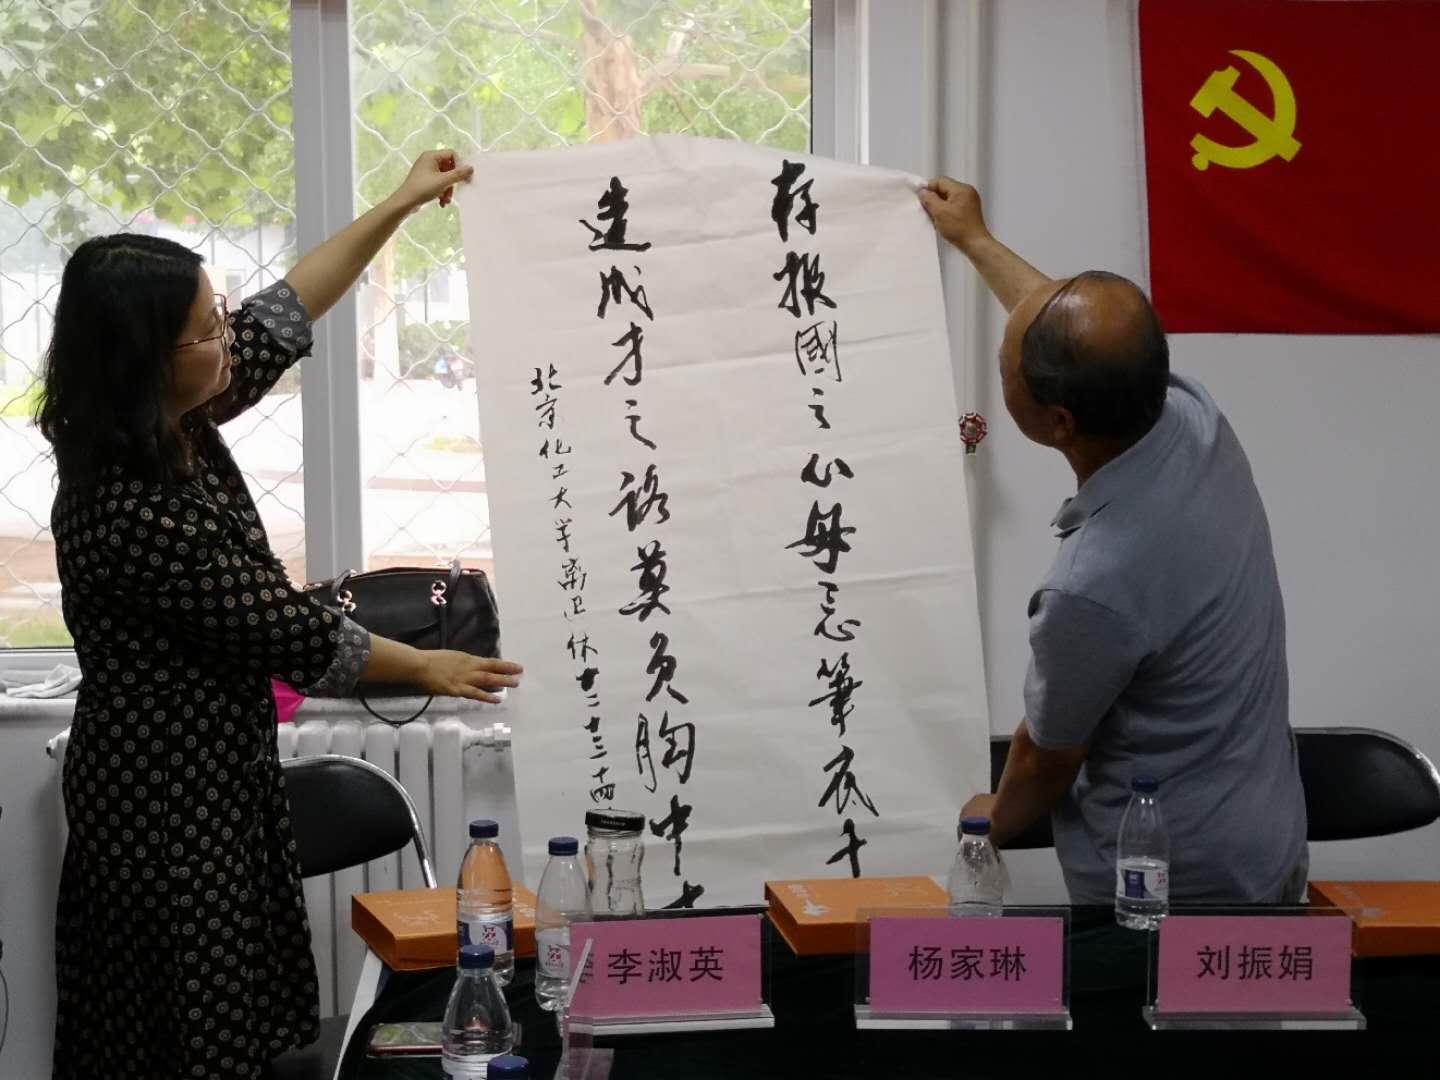 存报國之心毋忘筆底千
造成才之路莫负胸中
北京化工大学离退休
李淑英
杨家琳
刘振娟